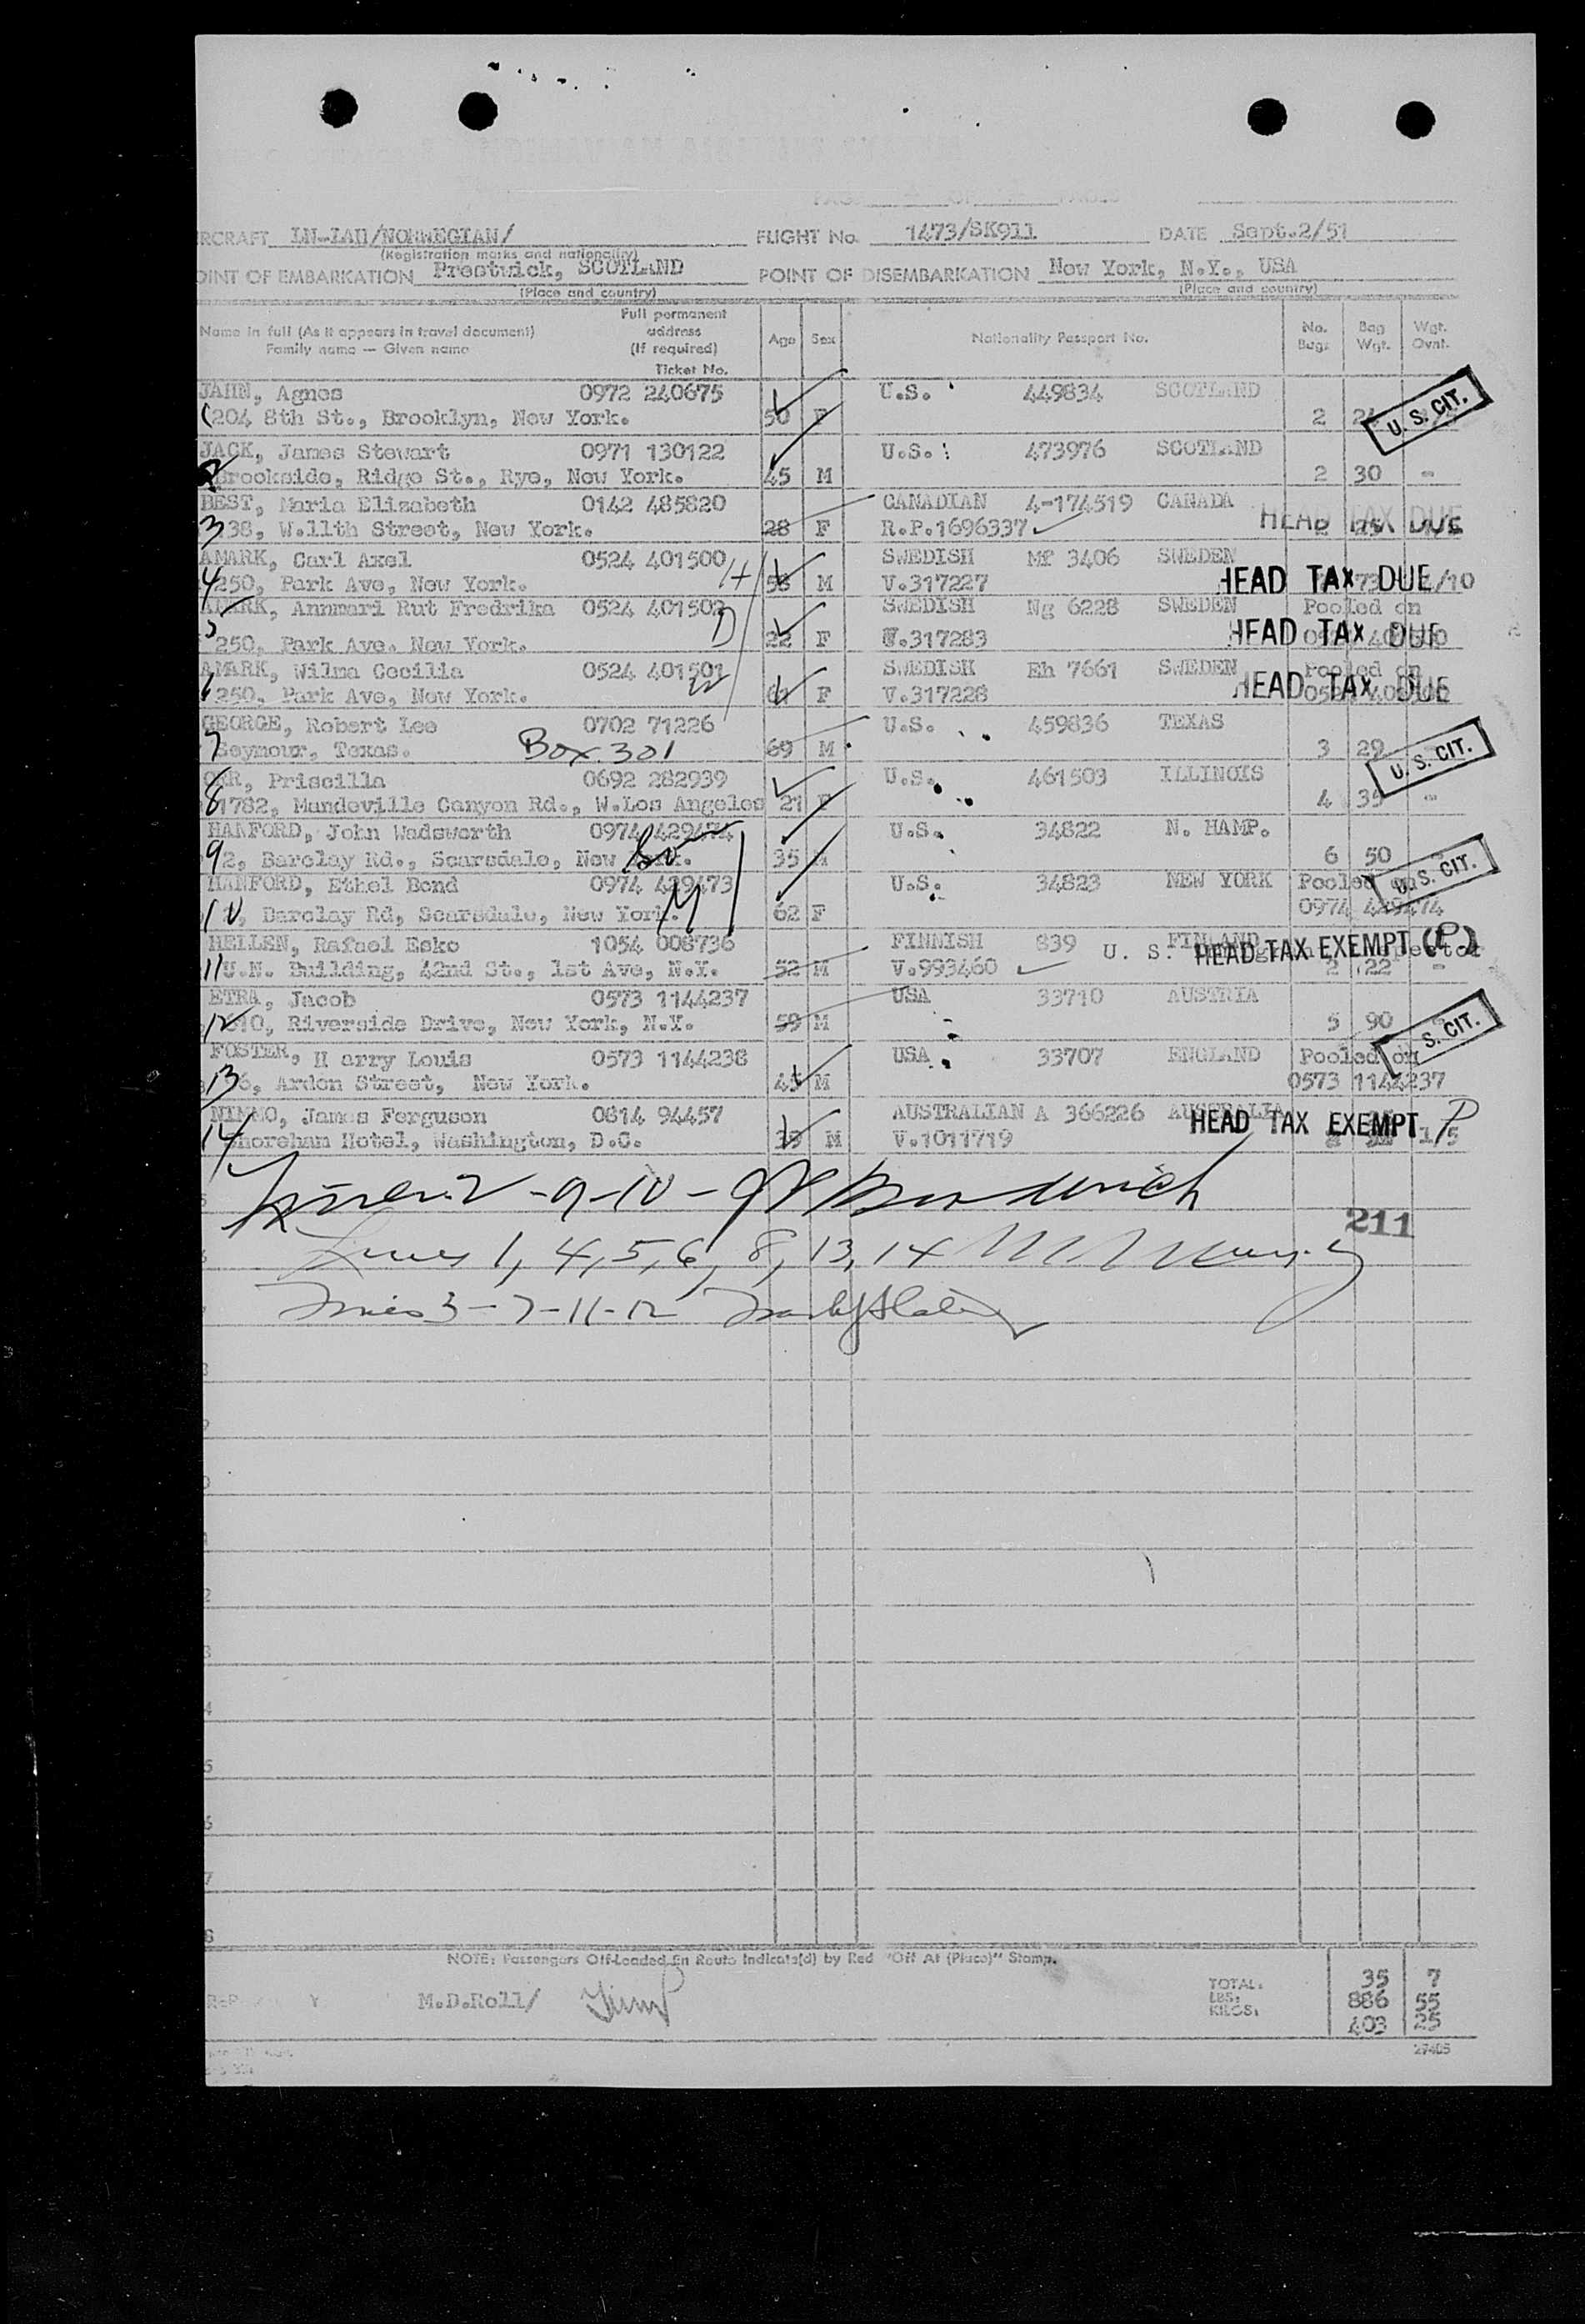 RCRAFT LN-LAH/NORWEGIAN/ FLIGHT No. 1473/SK911 DATE Sept.2/51
(Registration marks and nationality)
OINT OF EMBARKATION Prestwick, SCOTLAND POINT OF DISEMBARKATION New York, N.Y., USA
(Place and country) (Place and country)
Name in full (As it appears in travel document) Family name — Given name Full permanent address (If required) Ticket No. Age Sex Nationality Passport No. No. Bags Bag Wgt. Wgt. Ovnt.
JAHN, Agnes 0972 240675 U.S. 449834 SCOTLAND
1 204 8th St., Brooklyn, New York. 50 F 2 U. S. CIT.
JACK, James Stewart 0971 130122 U.S. 473976 SCOTLAND
2 Brookside, Ridge St., Rye, New York. 45 M 2 30 -
BEST, Maria Elizabeth 0142 485820 CANADIAN 4-174519 CANADA
3 38, W.11th Street, New York. 28 F R.P.1696337 HEAD TAX DUE
AMARK, Carl Axel 0524 401500 H SWEDISH Mf 3406 SWEDEN
4 250, Park Ave, New York. M V.317227 HEAD TAX DUE /10
AMARK, Annmari Rut Fredrika 0524 401502 D SWEDISH Ng 6228 SWEDEN Pooled on
5 250, Park Ave. New York. 22 F V.317283 HEAD TAX DUE
AMARK, Wilma Cecilia 0524 401501 W SWEDISH Eh 7661 SWEDEN Pooled on
6 250, Park Ave, New York. F V.317228 HEAD TAX DUE
GEORGE, Robert Lee 0702 71226 U.S. 459836 TEXAS
7 Seymour, Texas. Box 301 69 M 3 29 U. S. CIT.
Priscilla 0692 282939 U.S. 461503 ILLINOIS
8 1782, Mandeville Canyon Rd., W.Los Angeles 21 F 4 35 -
HANFORD, John Wadsworth 0974 429474 U.S. 34822 N. HAMP.
9 2, Barclay Rd., Scarsdale, New York. 35 M 6 50 -
HANFORD, Ethel Bond 0974 429473 M U.S. 34823 NEW YORK Pooled on U. S. CIT.
10 Barclay Rd, Scarsdale, New York. 62 F 0974 429474
HELLEN, Rafael Esko 1054 008736 FINNISH 839 FINLAND U. S. HEAD TAX EXEMPT (P)
11 U.N. Building, 42nd St., 1st Ave, N.Y. 52 M V.993460 2 22 -
ETRA, Jacob 0573 1144237 USA 33710 AUSTRIA
12 Riverside Drive, New York, N.Y. 59 M 5 90 S. CIT.
FOSTER, H arry Louis 0573 1144238 USA 33707 ENGLAND Pooled on
13 6, Arden Street, New York. 45 M 0573 1144237
NIMMO, James Ferguson 0814 94457 AUSTRALIAN A 366226 AUSTRALIA HEAD TAX EXEMPT P
14 Shoreham Hotel, Washington, D.C. M V.1011719
2-9-10-
211
Lines 1, 4, 5, 6, 8, 13, 14
Lines 3-7-11-12
NOTE: Passengers Off-Loaded En Route Indicate(d) by Red "Off At (Place)" Stamp.
M.D.Roll/ TOTAL: 35 7
LBS: 886 55
KILOS: 403 25
27405